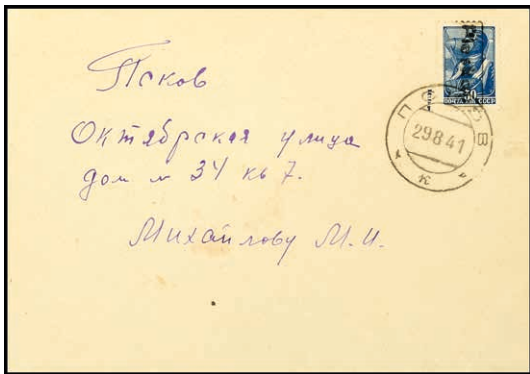 Псков
Октябрская улица
дом № 34 кв 7.
Михайлову М.И.
30
ПОЧТА СССР
29 8 41